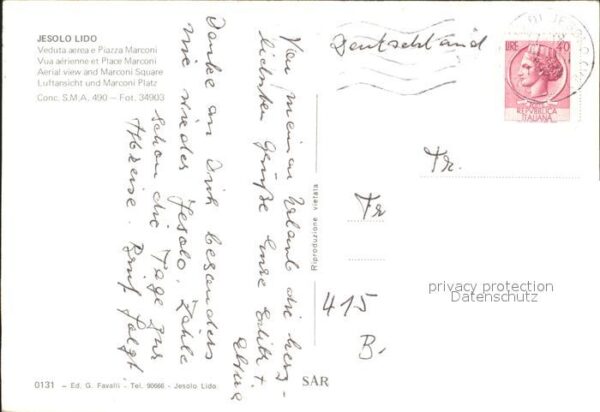 JESOLO LIDO
Veduta aerea e Piazza Marconi
Vua aérienne et Place Marconi
Aerial view and Marconi Square
Luftansicht und Marconi Platz
Conc. S.M.A. 490 – Fot. 34903
Von meinem Urlaub die herz-
lichsten Grüße Eure Edith +
Danke an Dich besonders
nie wieder Jesolo. Zähle
schon die Tage zur
Abreise. Brief folgt.
Riproduzione vietata
Deutschland
DI JESOLO
LIRE 40
REPVBBLICA
ITALIANA
Fr.
Fr
415
B.
privacy protection
Datenschutz
0131 – Ed. G. Favalli – Tel. 90666 – Jesolo Lido
SAR